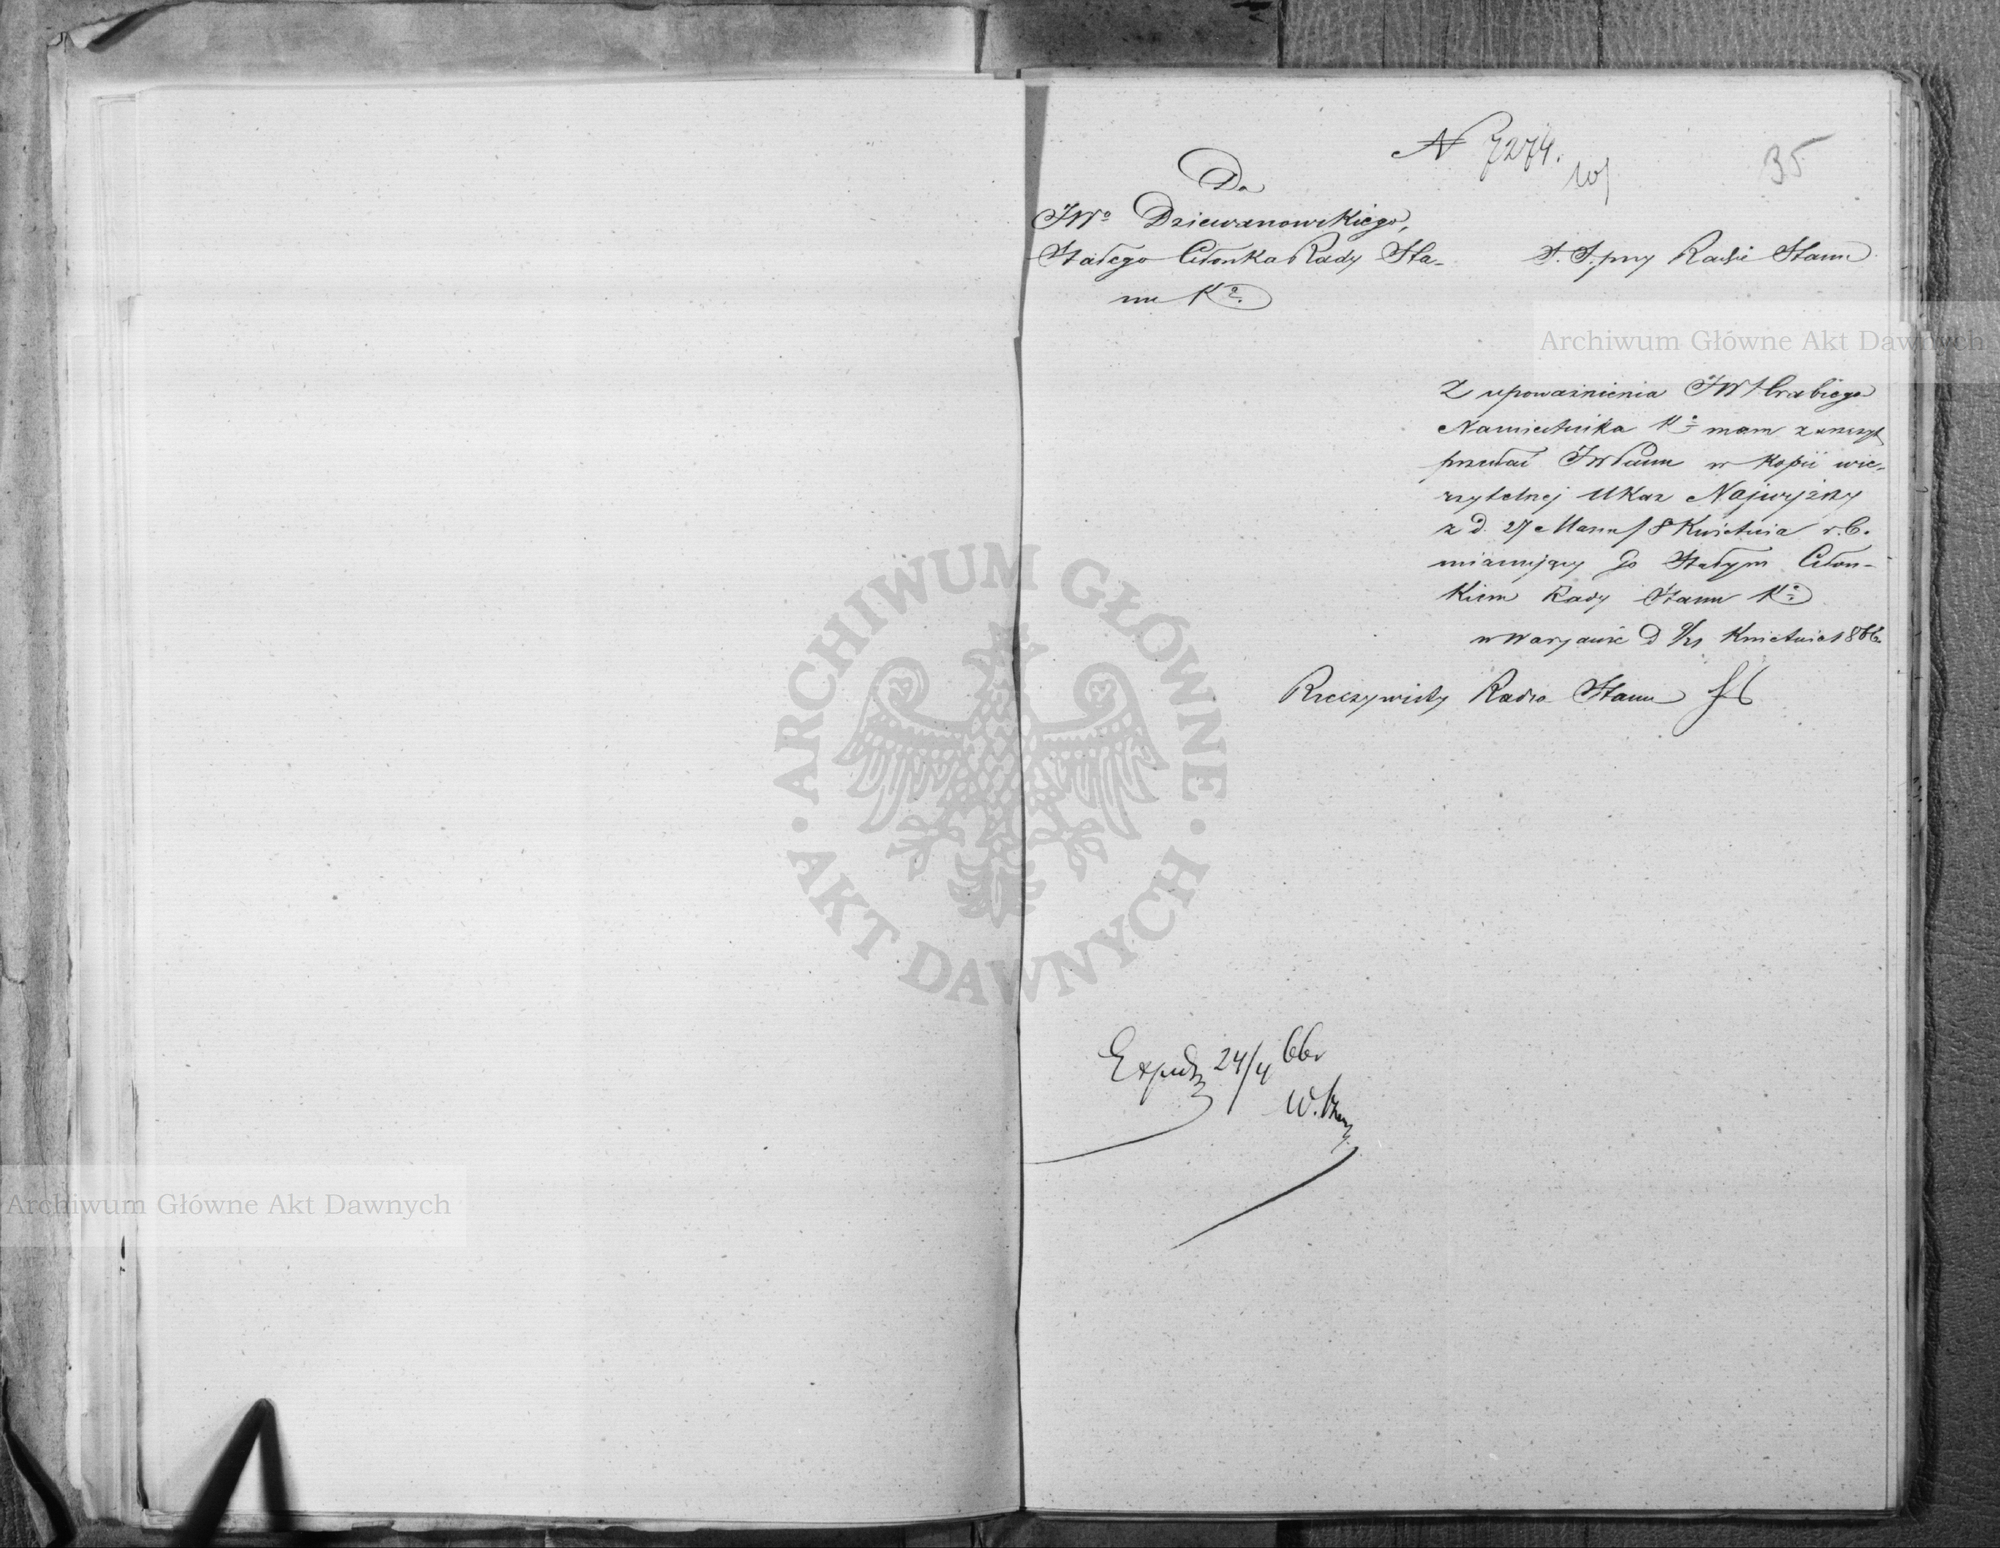 N 7274.
35
Do
JWo Dziewanowskiego,
Stałego Członka Rady Sta-
nu Ko.
S. S. przy Radzie Stanu
Z upoważnienia JW Hrabiego
Namiestnika Ko mam zaszczyt
przesłać JWPanu w kopii wie-
rzytelnej Ukaz Najwyższy
z d. 27 Marca/8 Kwietnia r. b.
mianujący Go Stałym Człon-
kiem Rady Stanu Ko
w Warszawie d 9/21 Kwietnia 1866
Rzeczywisty Radca Stanu
24/4 66
W.
Archiwum Główne Akt Dawnych
ARCHIWUM GŁÓWNE
AKT DAWNYCH
Archiwum Główne Akt Dawnych